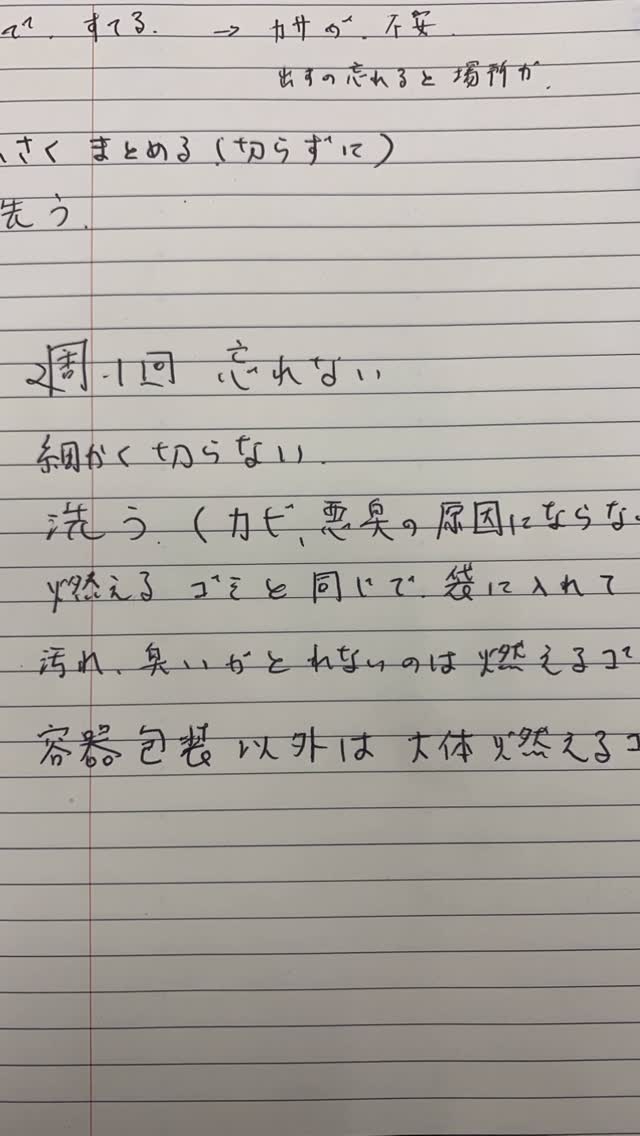 で、すてる. → カサが. 不安.
出すの忘れると 場所が.
さく まとめる (切らずに)
洗う.
2週.1回 忘れない
細かく 切らない.
洗う. (カビ、悪臭の原因にならな
燃える ゴミと 同じで. 袋に入れて
汚れ、臭いがとれないのは 燃えるゴ
容器包装 以外は 大体 燃えるゴ